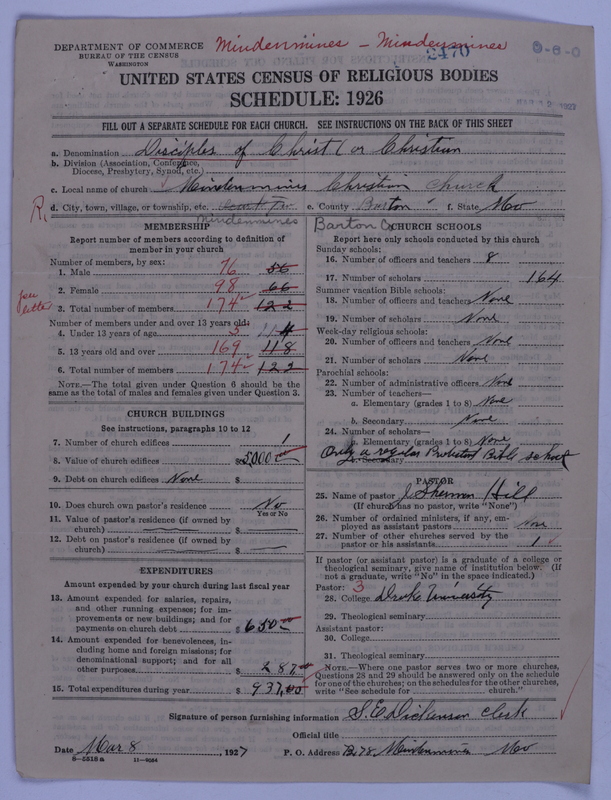 DEPARTMENT OF COMMERCE
BUREAU OF THE CENSUS
WASHINGTON
Mindenmines - Mindenmines
2470
UNITED STATES CENSUS OF RELIGIOUS BODIES
SCHEDULE: 1926
FILL OUT A SEPARATE SCHEDULE FOR EACH CHURCH. SEE INSTRUCTIONS ON THE BACK OF THIS SHEET
a. Denomination Disciples of Christ (or Christian
b. Division (Association, Conference, Diocese, Presbytery, Synod, etc.)
c. Local name of church Mindenmines Christian Church
d. City, town, village, or township, etc. e. County Barton f. State Mo
Mindenmines Barton Co
MEMBERSHIP
Report number of members according to definition of member in your church
Number of members, by sex:
1. Male 76 56
2. Female 98 66
3. Total number of members 174 122
per letter
Number of members under and over 13 years old:
4. Under 13 years of age
5. 13 years old and over 169 118
6. Total number of members 174 122
NOTE.—The total given under Question 6 should be the same as the total of males and females given under Question 3.
CHURCH BUILDINGS
See instructions, paragraphs 10 to 12
7. Number of church edifices 1
8. Value of church edifices $5000.00
9. Debt on church edifices None $
10. Does church own pastor's residence? No
Yes or No
11. Value of pastor's residence (if owned by church) $
12. Debt on pastor's residence (if owned by church) $
EXPENDITURES
Amount expended by your church during last fiscal year
13. Amount expended for salaries, repairs, and other running expenses; for improvements or new buildings; and for payments on church debt $650.00
14. Amount expended for benevolences, including home and foreign missions; for denominational support; and for all other purposes $287.00
15. Total expenditures during year $937.00
CHURCH SCHOOLS
Report here only schools conducted by this church
Sunday schools:
16. Number of officers and teachers 8
17. Number of scholars 164
Summer vacation Bible schools:
18. Number of officers and teachers None
19. Number of scholars None
Week-day religious schools:
20. Number of officers and teachers None
21. Number of scholars None
Parochial schools:
22. Number of administrative officers None
23. Number of teachers—
a. Elementary (grades 1 to 8) None
b. Secondary None
24. Number of scholars—
a. Elementary (grades 1 to 8) None
b. Secondary
Only a regular Protestant Bible school
PASTOR
25. Name of pastor J Sherman Hill
(If church has no pastor, write "None")
26. Number of ordained ministers, if any, employed as assistant pastors None
27. Number of other churches served by the pastor or his assistants 1
If pastor (or assistant pastor) is a graduate of a college or theological seminary, give name of institution below. (If not a graduate, write "No" in the space indicated.)
Pastor: 3
28. College Drake University
29. Theological seminary
Assistant pastor:
30. College
31. Theological seminary
NOTE.—Where one pastor serves two or more churches, Questions 28 and 29 should be answered only on the schedule for one of the churches; on the schedules for the other churches, write "See schedule for church."
Signature of person furnishing information S. E. Dickinson clerk
Official title
Date Mar 8, 1927 P. O. Address B. 78 Mindenmines Mo
8-5518a 11-9064